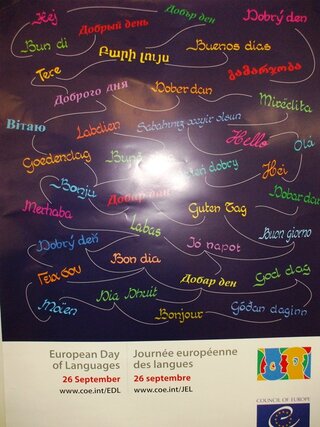 Hej
Добрый день
Добър ден
Dobrý den
Bun di
Բարի լույս
Buenos dias
Tere
გამარჯობა
Доброго дня
Dober dan
Mirëdita
Вітаю
Labdien
Sabahınız xeyir olsun
Hello
Olá
Goedendag
Bună
dobry
Hei
Bonju
Добар дан
Guten Tag
Dobar dan
Merhaba
Labas
Buon giorno
Dobrý deň
Jó napot
Γεια σου
Bon dia
Добар ден
God dag
Moïen
Dia Dhuit
Bonjour
Góðan daginn
European Day
of Languages
26 September
www.coe.int/EDL
Journée européenne
des langues
26 septembre
www.coe.int/JEL
COUNCIL OF EUROPE